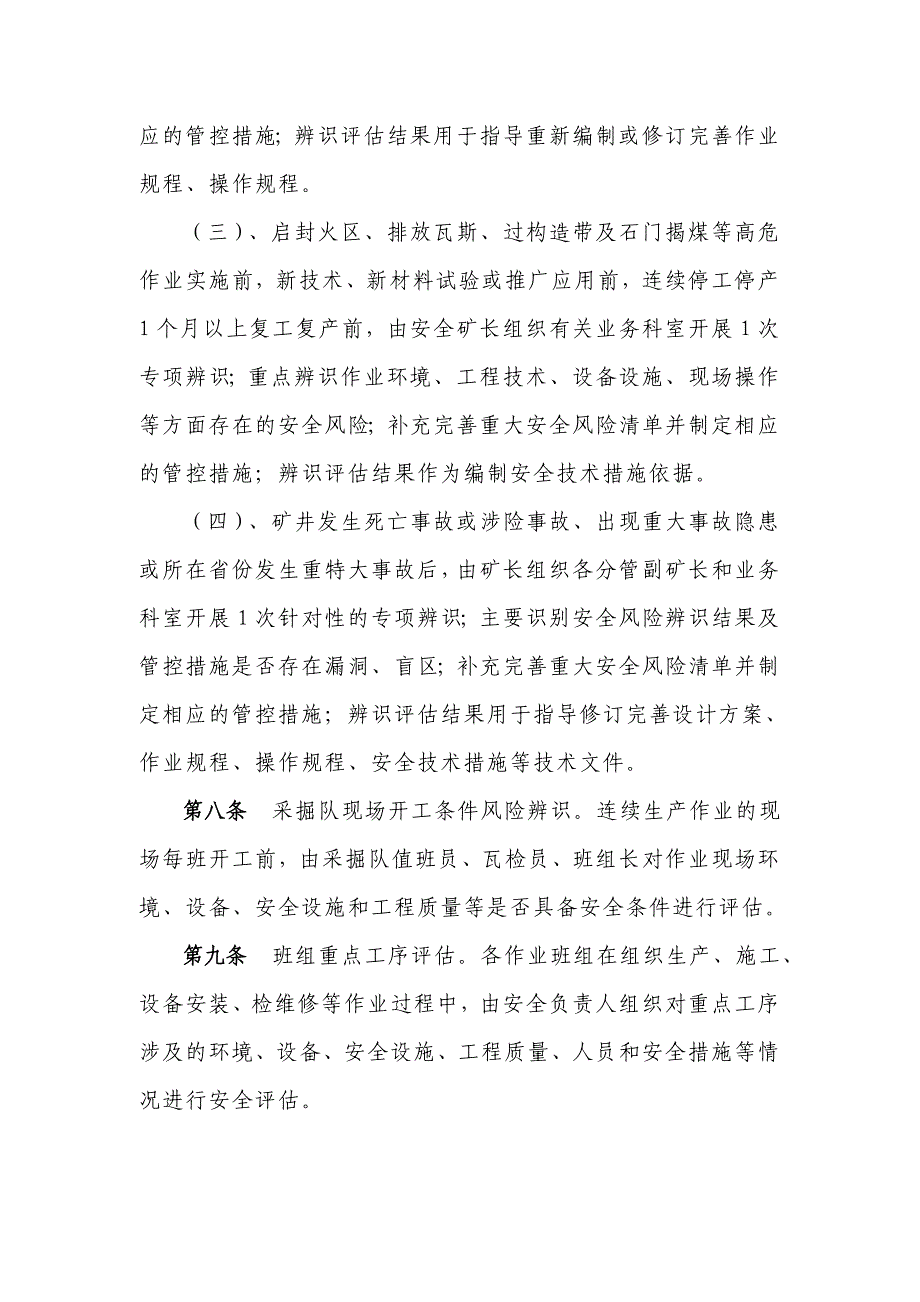 应的管控措施；辨识评估结果用于指导重新编制或修订完善作业
规程、操作规程。
（三）、启封火区、排放瓦斯、过构造带及石门揭煤等高危
作业实施前，新技术、新材料试验或推广应用前，连续停工停产
1 个月以上复工复产前，由安全矿长组织有关业务科室开展 1 次
专项辨识；重点辨识作业环境、工程技术、设备设施、现场操作
等方面存在的安全风险；补充完善重大安全风险清单并制定相应
的管控措施；辨识评估结果作为编制安全技术措施依据。
（四）、矿井发生死亡事故或涉险事故、出现重大事故隐患
或所在省份发生重特大事故后，由矿长组织各分管副矿长和业务
科室开展 1 次针对性的专项辨识；主要识别安全风险辨识结果及
管控措施是否存在漏洞、盲区；补充完善重大安全风险清单并制
定相应的管控措施；辨识评估结果用于指导修订完善设计方案、
作业规程、操作规程、安全技术措施等技术文件。
第八条 采掘队现场开工条件风险辨识。连续生产作业的现
场每班开工前，由采掘队值班员、瓦检员、班组长对作业现场环
境、设备、安全设施和工程质量等是否具备安全条件进行评估。
第九条 班组重点工序评估。各作业班组在组织生产、施工、
设备安装、检维修等作业过程中，由安全负责人组织对重点工序
涉及的环境、设备、安全设施、工程质量、人员和安全措施等情
况进行安全评估。